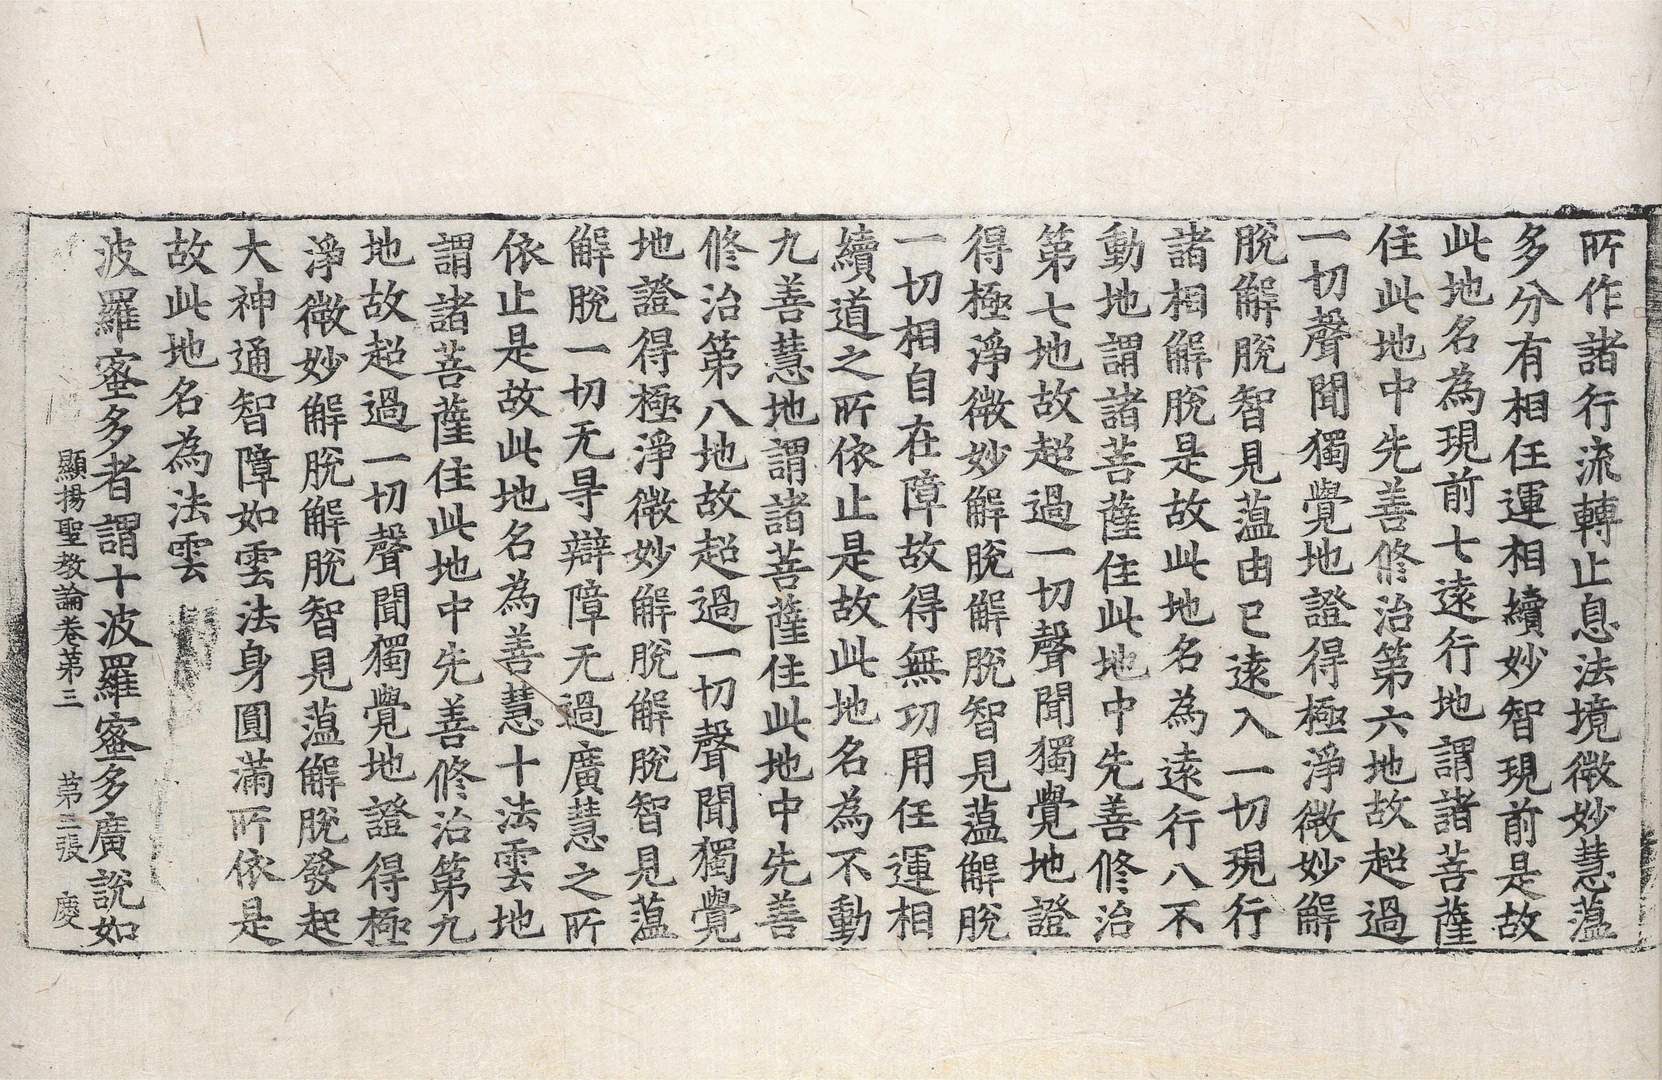 所作諸行流轉止息法境微妙慧蕴
多分有相任運相續妙智現前是故
此地名為現前七遠行地謂諸菩薩
住此地中先善修治第六地故超過
一切聲聞獨覺地證得極淨微妙解
脫解脫智見蕰由已遠入一切現行
諸相解脫是故此地名為遠行八不
動地謂諸菩薩住此地中先善修治
第七地故超過一切聲聞獨覺地證
得極淨微妙解脫解脫智見蕰解脫
一切相自在障故得無功用任運相
續道之所依止是故此地名為不動
九善慧地謂諸菩薩住此地中先善
修治第八地故超過一切聲聞獨覺
地證得極淨微妙解脫解脫智見蕰
解脫一切无㝵辯障无過廣慧之所
依止是故此地名為善慧十法雲地
謂諸菩薩住此地中先善修治第九
地故超過一切聲聞獨覺地證得極
淨微妙解脫解脫智見蕰解脫發起
大神通智障如雲法身圓滿所依是
故此地名為法雲
波羅蜜多者謂十波羅蜜多廣說如
顯揚聖教論卷第三 第三張 慶